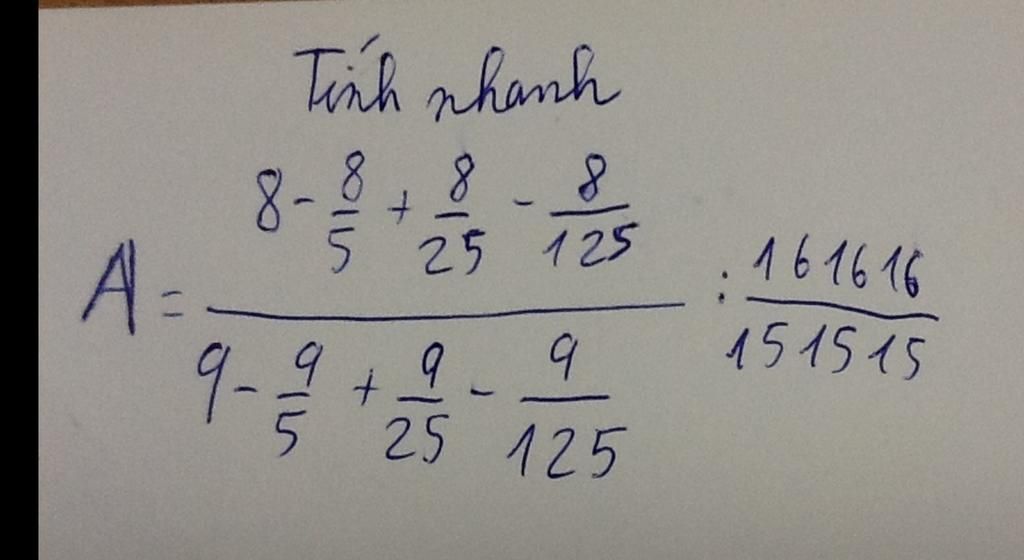 Tính nhanh
A = \frac{8 - \frac{8}{5} + \frac{8}{25} - \frac{8}{125}}{9 - \frac{9}{5} + \frac{9}{25} - \frac{9}{125}} : \frac{161616}{151515}